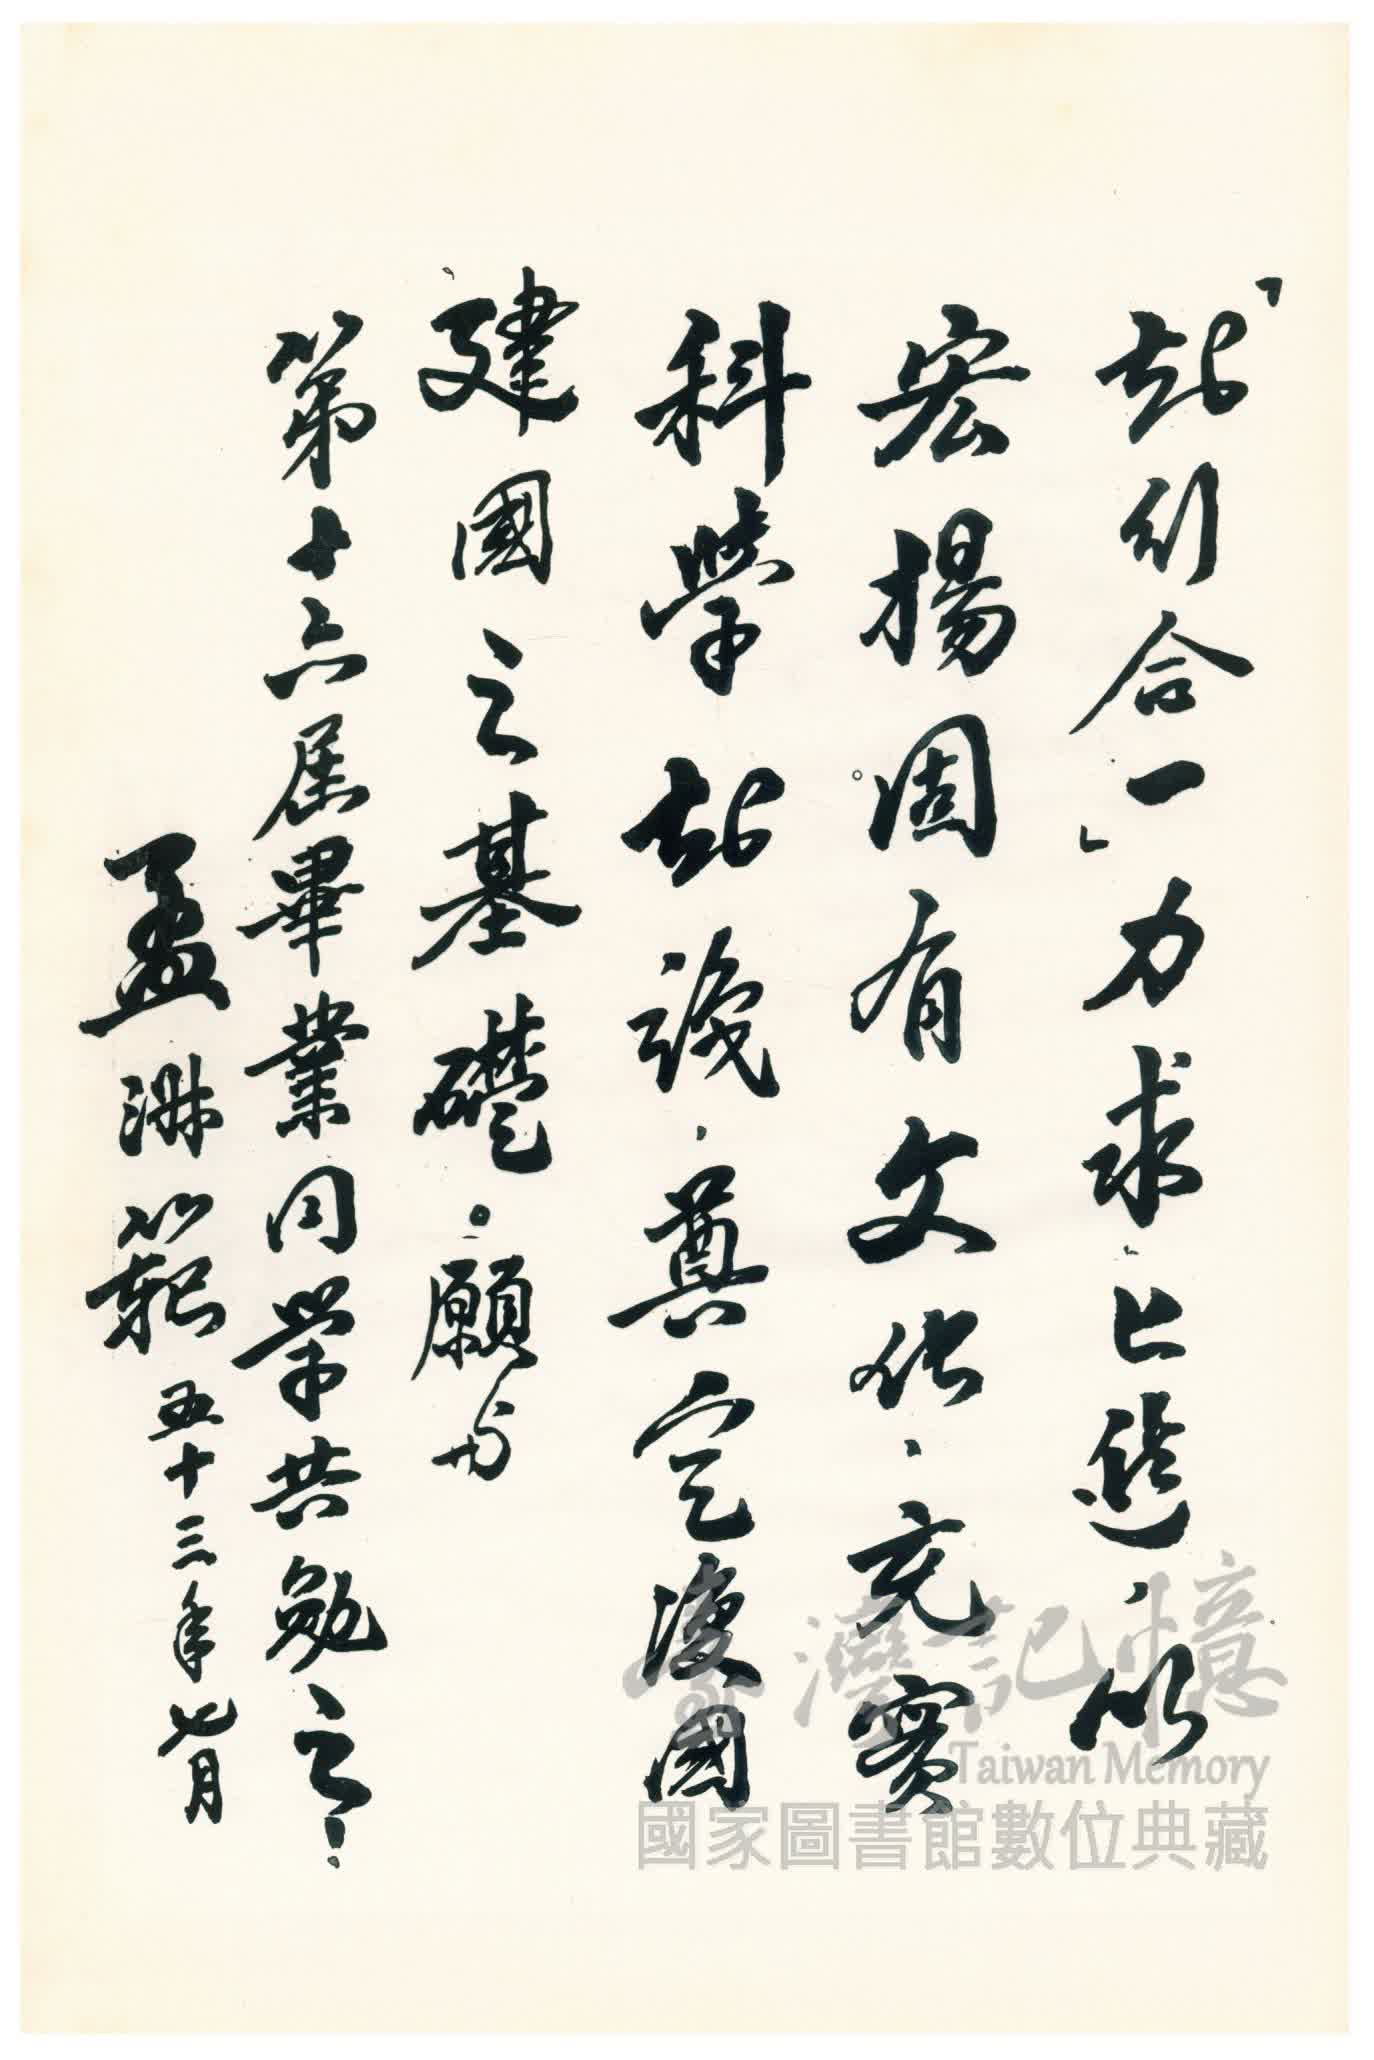 「知行合一」力求上進，以
宏揚固有文化，充實
科學知識，奠定復國
建國之基礎。願與
第十六屆畢業同學共勉之！
孟淑範 五十三年七月
臺灣記憶
Taiwan Memory
國家圖書館數位典藏